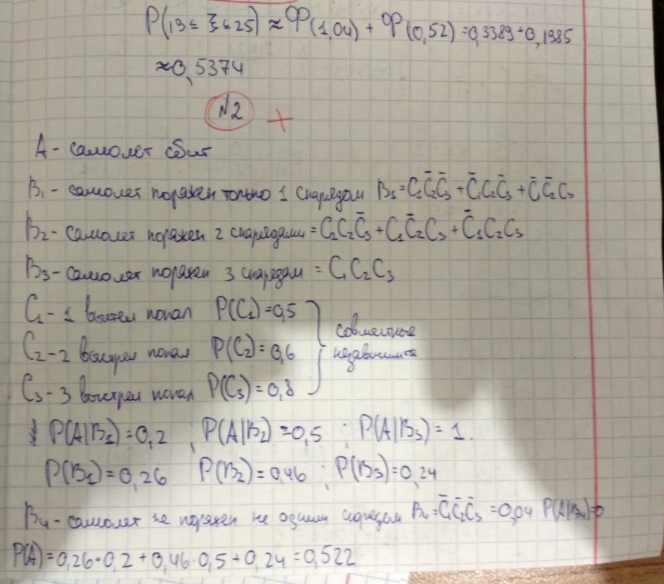 P(13 ≤ ξ ≤ 25) ≈ Φ(1,04) + Φ(0,52) = 0,3389 + 0,1985
≈ 0,5374
№2 +
A - самолет сбит
B₁ - самолет поражен только 1 снарядом B₁ = C₁C̄₂C̄₃ + C̄₁C₂C̄₃ + C̄₁C̄₂C₃
B₂ - самолет поражен 2 снарядами = C₁C₂C̄₃ + C₁C̄₂C₃ + C̄₁C₂C₃
B₃ - самолет поражен 3 снарядом = C₁C₂C₃
C₁ - 1 выстрел попал P(C₁) = 0,5
C₂ - 2 выстрел попал P(C₂) = 0,6
C₃ - 3 выстрел попал P(C₃) = 0,8
совместные
независимые
P(A|B₁) = 0,2 ; P(A|B₂) = 0,5 ; P(A|B₃) = 1.
P(B₁) = 0,26 P(B₂) = 0,46 ; P(B₃) = 0,24
B₄ - самолет не поражен не одним снарядом B₄ = C̄₁C̄₂C̄₃ = 0,04 P(A|B₄) = 0
P(A) = 0,26 · 0,2 + 0,46 · 0,5 + 0,24 = 0,522